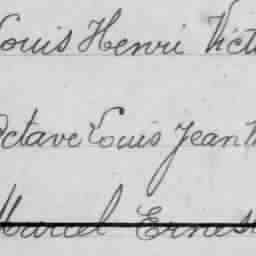 Louis Henri Vict
Octave Louis Jean
Marcel Ernest